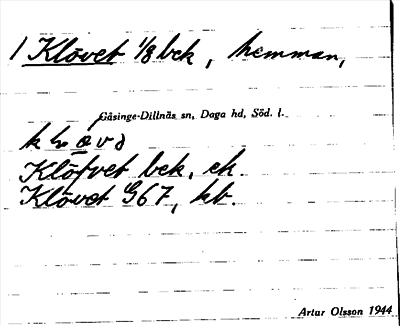 1 Klövet 1/8 bek, hemman,
Gåsinge-Dillnäs sn, Daga hd, Söd. l.
Klöfvet bek, ek.
Klövet G67, kb.
Artur Olsson 1944